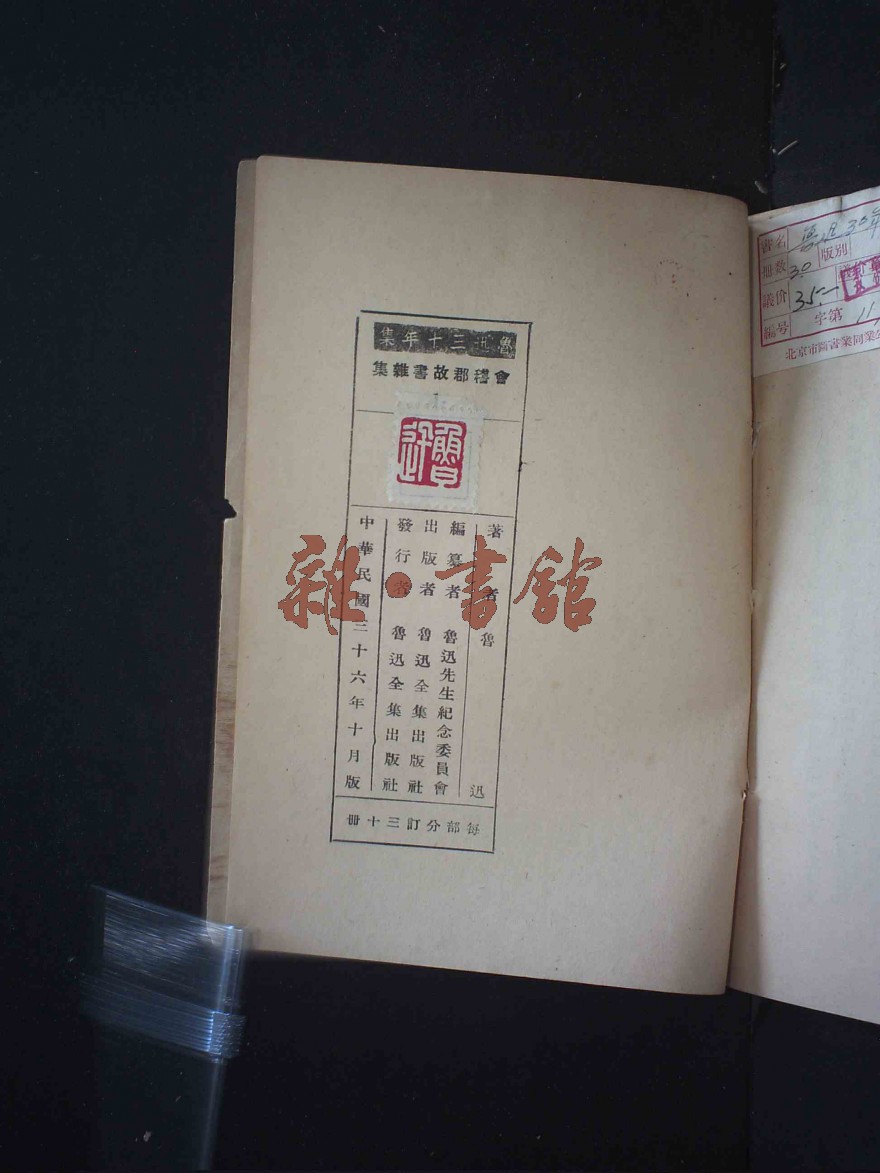 魯迅三十年集
會稽郡故書雜集
1
魯迅
著者 魯迅
編纂者 魯迅先生紀念委員會
出版者 魯迅全集出版社
發行者 魯迅全集出版社
中華民國三十六年十月版
每部分訂三十冊
雜·書館
書名 魯迅30年
冊数 30 版别
議价 35.-
編号 字第 11
北京市圖書業同業公